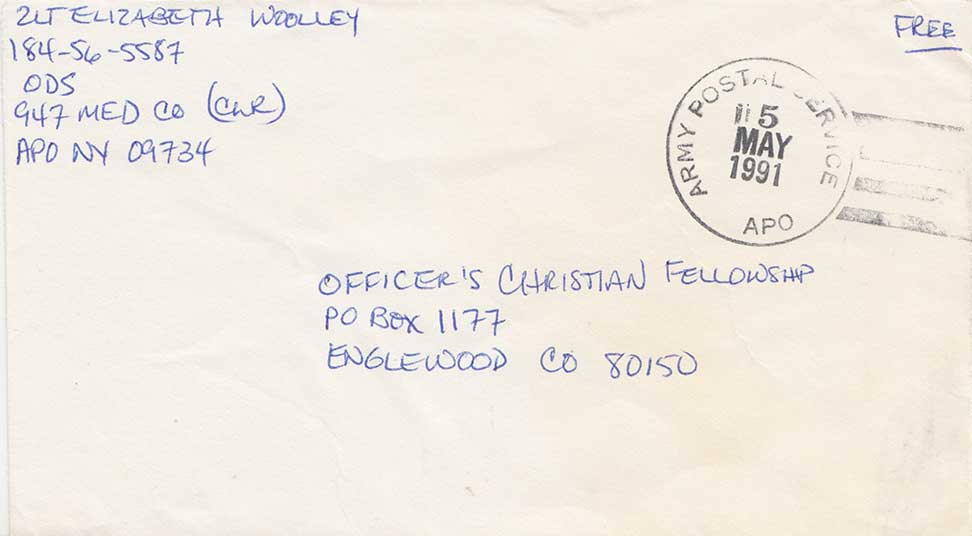 2LT ELIZABETH WOOLLEY
184-56-5587
ODS
947 MED CO (CLR)
APO NY 09734
FREE
ARMY POSTAL SERVICE
5
MAY
1991
APO
OFFICER'S CHRISTIAN FELLOWSHIP
PO BOX 1177
ENGLEWOOD CO 80150